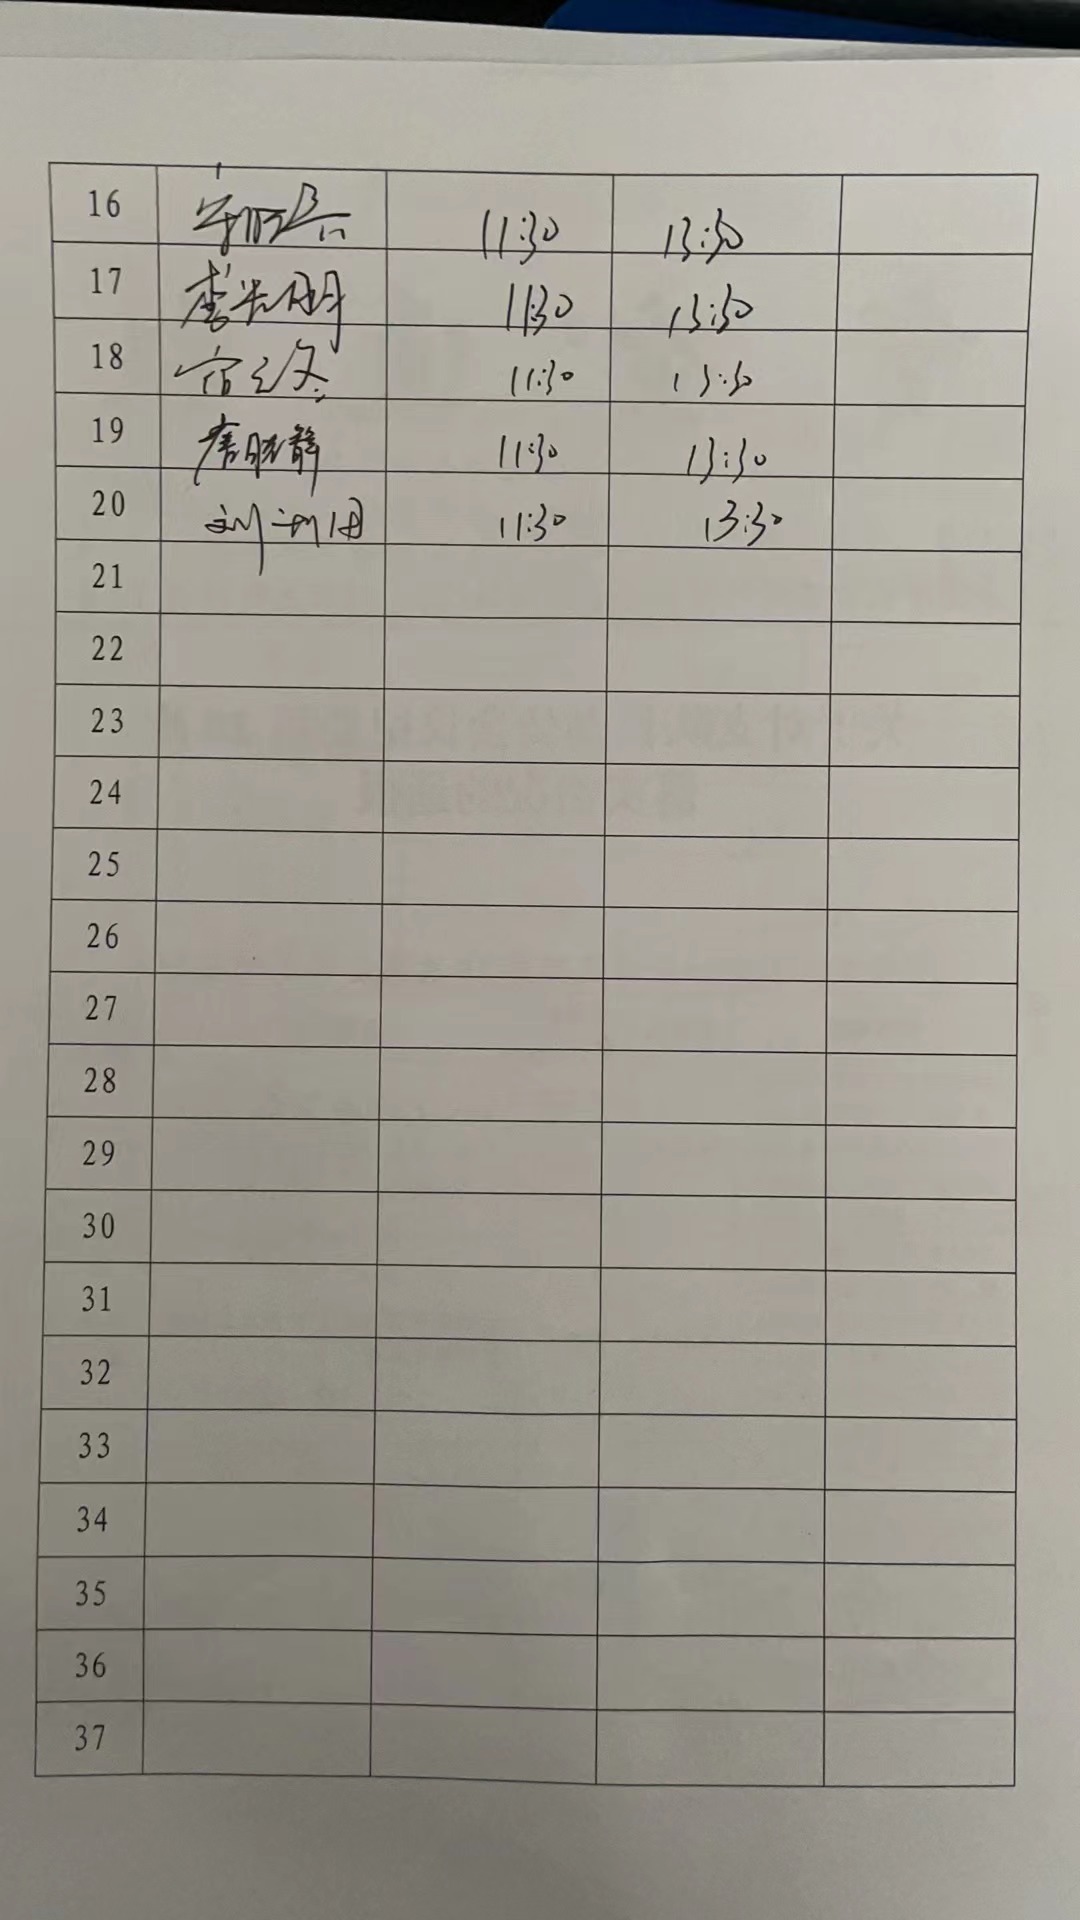 16 11:30 13:30
17 李光明 11:30 13:30
18 11:30 13:30
19 唐晓静 11:30 13:30
20 11:30 13:30
21
22
23
24
25
26
27
28
29
30
31
32
33
34
35
36
37